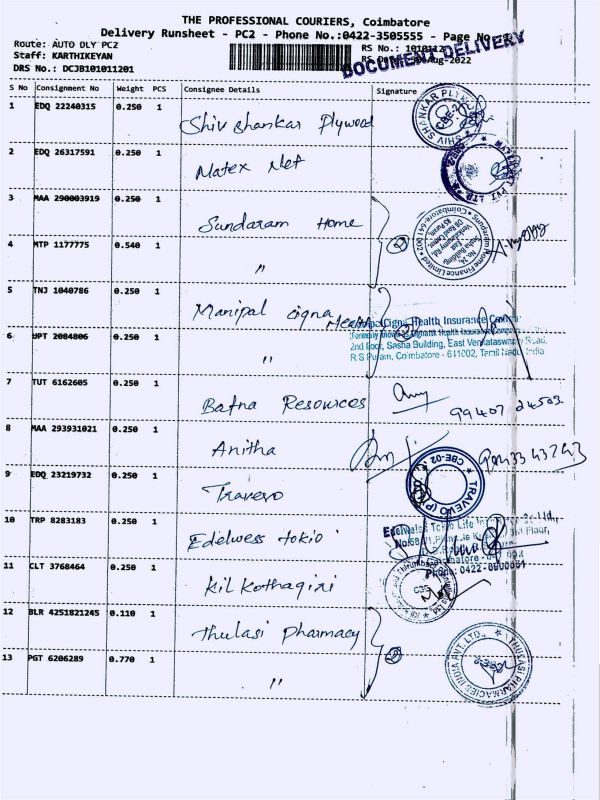 THE PROFESSIONAL COURIERS, Coimbatore
Delivery Runsheet - PC2 - Phone No.:0422-3505555 - Page No
Route: AUTO DLY PC2
RS No.: 1010112
Staff: KARTHIKEYAN
DOCUMENT DELIVERY
Aug-2022
DRS No.: DCJB101011201
S No Consignment No Weight PCS Consignee Details Signature
1 EDQ 22240315 0.250 1 Shiv Shankar Plywood
2 EDQ 26317591 0.250 1 Matex Net
3 MAA 290003919 0.250 1 Sundaram Home
4 MTP 1177775 0.540 1 "
5 TNJ 1040786 0.250 1 Manipal cigna Health
Cigna Health Insurance
6 UPT 2084806 0.250 1 "
2nd Floor, Sasha Building, East Venkataswamy Road,
R S Puram, Coimbatore - 611002, Tamil Nadu, India
7 TUT 6162605 0.250 1 Bafna Resources
99407 24503
8 MAA 293931021 0.250 1 Anitha
9 EDQ 23219732 0.250 1 Travevo
CBE-02
TRAVEVO (P)
10 TRP 8283183 0.250 1 Edelwess tokio
Edelweiss Tokio Life
Floor,
Phone: 0422-
11 CLT 3768464 0.250 1 Kil Kothagiri
12 BLR 4251821245 0.110 1 Thulasi Pharmacy
13 PGT 6206289 0.770 1 "
THULASI PHARMACIES INDIA PVT. LTD.,